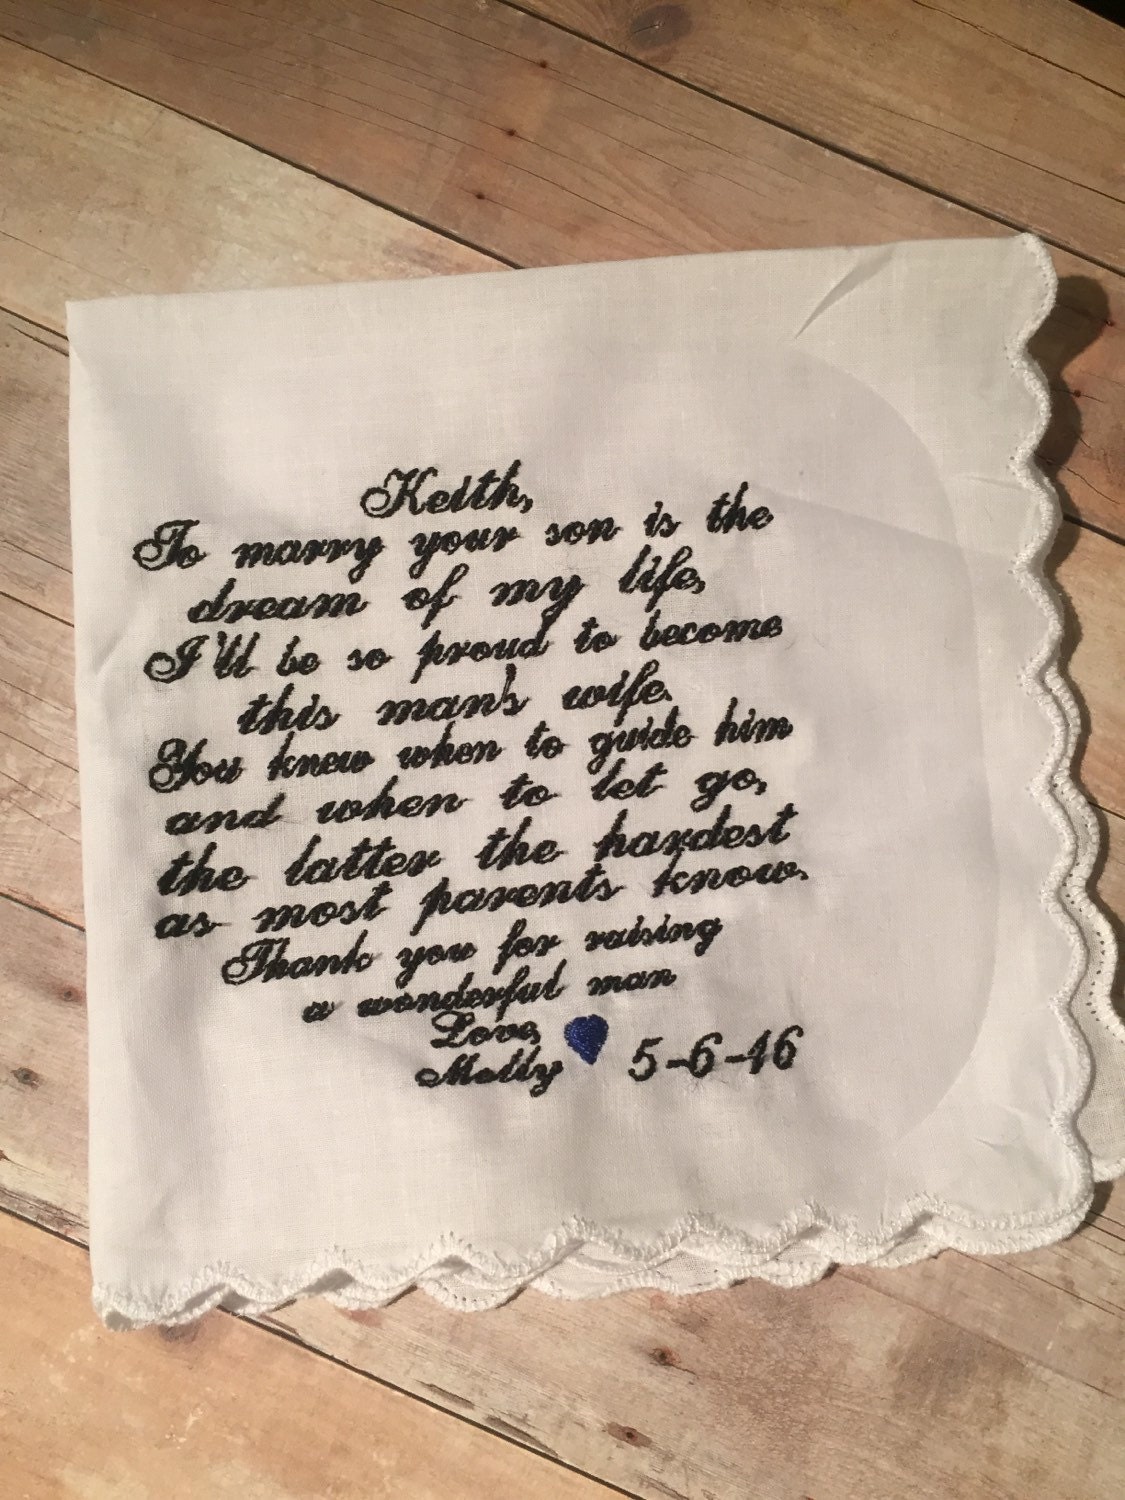 Keith,
To marry your son is the
dream of my life,
I'll be so proud to become
this man's wife.
You knew when to guide him
and when to let go,
the latter the hardest
as most parents know.
Thank you for raising
a wonderful man
Love,
Molly 5-6-16